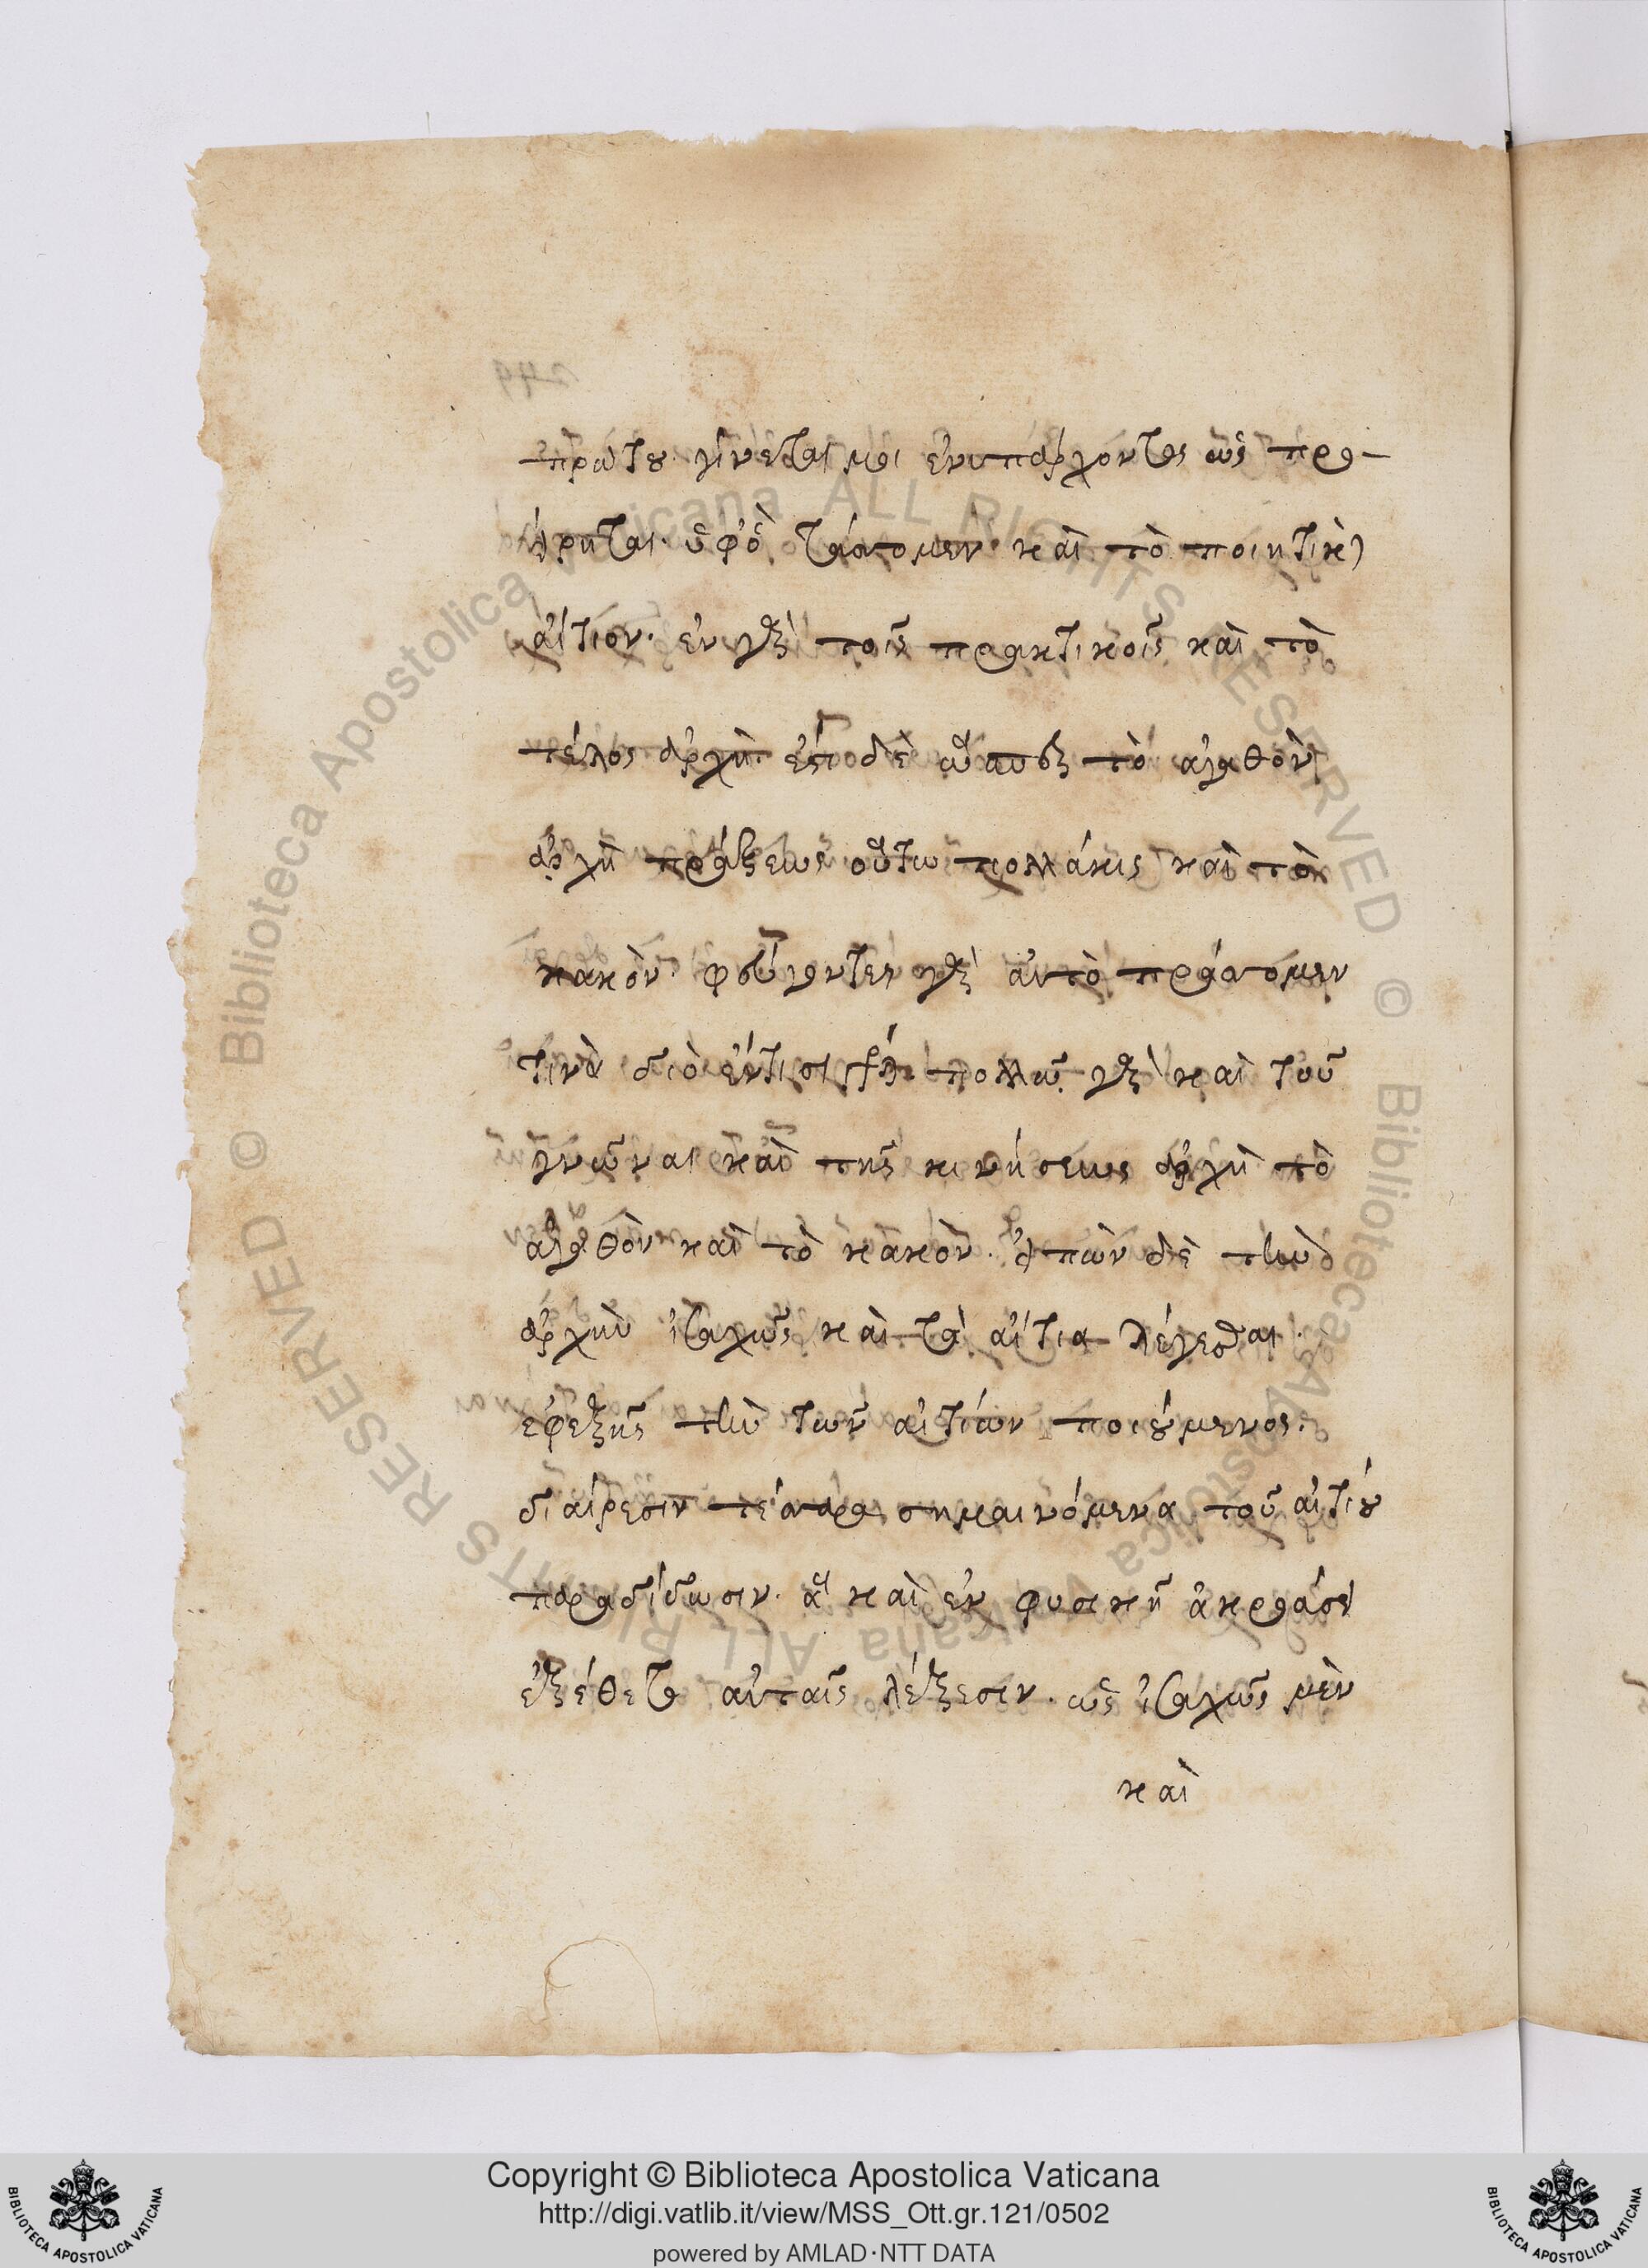 πρώτου γίνεται μὴ ἐνυπάρχοντος ὡς προ-
είρηται. ὑφ' ὃ τάττομεν καὶ τὸ ποιητικὸν
αἴτιον. ἐν γὰρ τοῖς πρακτικοῖς καὶ τὸ
τέλος ἀρχὴ ἐστὶ δὲ ὥσπερ τὸ ἀγαθὸν
ἀρχὴ πράξεως οὕτω πολλάκις καὶ τὸ
κακὸν. φεύγοντες γὰρ αὐτὸ πράττομεν
τινὰ διὸ πολλῶν γὰρ καὶ τοῦ
γνῶναι καὶ τῆς κινήσεως ἀρχὴ τὸ
ἀγαθὸν καὶ τὸ κακὸν. εἰπὼν δὲ τὴν
ἀρχὴν ἰσαχῶς καὶ τὰ αἴτια λέγεσθαι.
ἐφεξῆς τὴν τῶν αἰτίων ποιούμενος.
διαίρεσιν τέσσαρα σημαινόμενα τοῦ αἰτίου
παραδίδωσιν. ἃ καὶ ἐν φυσικῇ ἀκροάσει
ἐξέθετο αὐταῖς λέξεσιν. ὡς ἰσαχῶς μὲν
καὶ
Copyright © Biblioteca Apostolica Vaticana
http://digi.vatlib.it/view/MSS_Ott.gr.121/0502
powered by AMLAD·NTT DATA
BIBLIOTECA APOSTOLICA VATICANA
BIBLIOTECA APOSTOLICA VATICANA
© Biblioteca Apostolica Vaticana ALL RIGHTS RESERVED
© Biblioteca Apostolica Vaticana ALL RIGHTS RESERVED